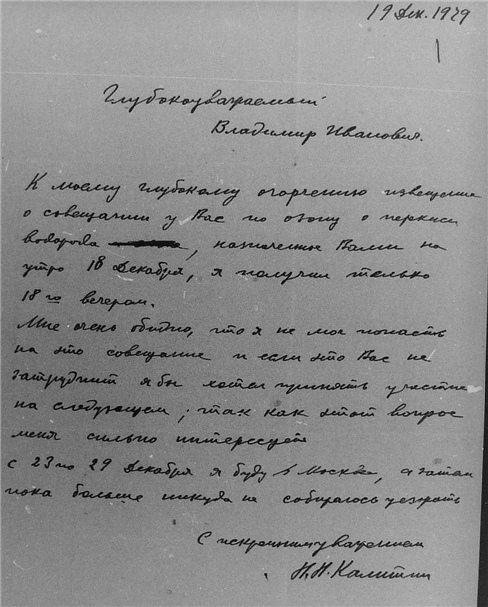 19 Дек. 1929
Глубокоуважаемый
Владимир Иванович.
К моему глубокому огорчению извещение
о совещании у Вас по озону о перкиси
водорода, назначенное Вами на
утро 18 Декабря, я получил только
18го вечером.
Мне очень обидно, что я не мог попасть
на это совещание и если это Вас не
затруднит я бы хотел принять участие
на следующем, так как этот вопрос
меня сильно интересует
с 23 по 29 Декабря я буду в Москве, а затем
пока больше никуда не собираюсь уезжать
С искренним уважением
Н.Н. Калитин